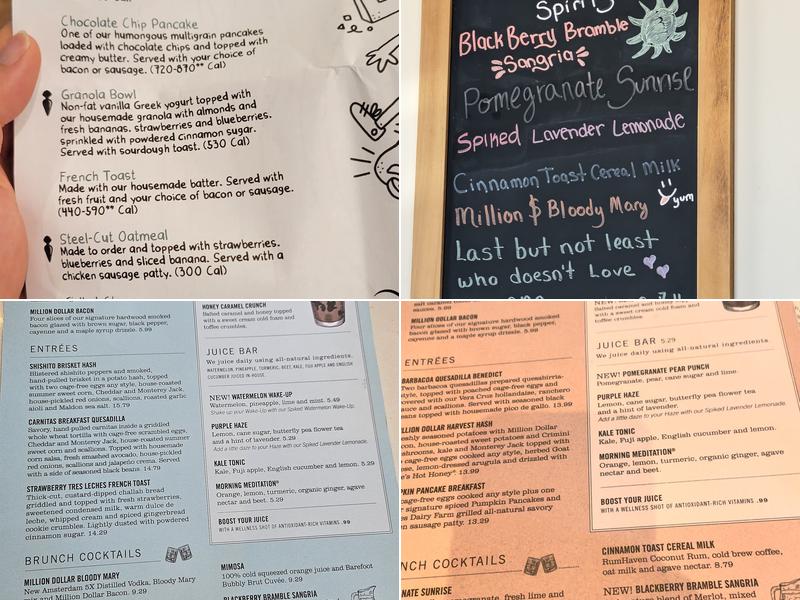 Chocolate Chip Pancake
One of our humongous multigrain pancakes
loaded with chocolate chips and topped with
creamy butter. Served with your choice of
bacon or sausage. (720-870** Cal)
Granola Bowl
Non-fat vanilla Greek yogurt topped with
our housemade granola with almonds and
fresh bananas, strawberries and blueberries.
sprinkled with powdered cinnamon sugar.
Served with sourdough toast. (530 Cal)
French Toast
Made with our housemade batter. Served with
fresh fruit and your choice of bacon or sausage.
(440-590** Cal)
Steel-Cut Oatmeal
Made to order and topped with strawberries.
blueberries and sliced banana. Served with a
chicken sausage patty. (300 Cal)
BlackBerry Bramble
Sangria
Pomegranate Sunrise
Spiked Lavender Lemonade
Cinnamon Toast Cereal Milk
Million $ Bloody Mary
yum
Last but not least
who doesn't Love
MILLION DOLLAR BACON
Four slices of our signature hardwood smoked
bacon glazed with brown sugar, black pepper,
cayenne and a maple syrup drizzle. 5.99
ENTRÉES
SHISHITO BRISKET HASH
Blistered shishito peppers and smoked,
hand-pulled brisket in a potato hash, topped
with two cage-free eggs any style, house-roasted
summer sweet corn, Cheddar and Monterey Jack,
house-pickled red onions, scallions, roasted garlic
aioli and Maldon sea salt. 15.79
CARNITAS BREAKFAST QUESADILLA
Savory, hand-pulled carnitas inside a griddled
whole wheat tortilla with cage-free scrambled eggs,
Cheddar and Monterey Jack, house-roasted summer
sweet corn and scallions. Topped with housemade
corn salsa, fresh smashed avocado, house-pickled
red onions, scallions and jalapeño crema. Served
with a side of seasoned black beans. 14.79
STRAWBERRY TRES LECHES FRENCH TOAST
Thick-cut, custard-dipped challah bread
griddled and topped with fresh strawberries,
sweetened condensed milk, warm dulce de
leche, whipped cream and spiced gingerbread
cookie crumbles. Lightly dusted with powdered
cinnamon sugar. 14.29
BRUNCH COCKTAILS
MILLION DOLLAR BLOODY MARY
New Amsterdam 5X Distilled Vodka, Bloody Mary
mix and Million Dollar Bacon. 9.29
HONEY CARAMEL CRUNCH
Salted caramel and honey topped
with a sweet cream cold foam and
toffee crumbles.
JUICE BAR
We juice daily using all-natural ingredients.
WATERMELON, PINEAPPLE, TURMERIC, BEET, KALE, FUJI APPLE AND ENGLISH
CUCUMBER JUICED IN-HOUSE.
NEW! WATERMELON WAKE-UP
Watermelon, pineapple, lime and mint. 5.49
Shake up your Wake-Up with our Spiked Watermelon Wake-Up.
PURPLE HAZE
Lemon, cane sugar, butterfly pea flower tea
and a hint of lavender. 5.29
Add a little daze to your Haze with our Spiked Lavender Lemonade.
KALE TONIC
Kale, Fuji apple, English cucumber and lemon. 5.29
MORNING MEDITATION®
Orange, lemon, turmeric, organic ginger, agave
nectar and beet. 5.29
BOOST YOUR JUICE
WITH A WELLNESS SHOT OF ANTIOXIDANT-RICH VITAMINS .99
MIMOSA
100% cold squeezed orange juice and Barefoot
Bubbly Brut Cuvée. 9.29
BLACKBERRY BRAMBLE SANGRIA
MILLION DOLLAR BACON
Four slices of our signature hardwood smoked
bacon glazed with brown sugar, black pepper,
cayenne and a maple syrup drizzle. 5.99
ENTRÉES
BARBACOA QUESADILLA BENEDICT
Two barbacoa quesadillas prepared quesabirria-
style, topped with poached cage-free eggs and
covered with our Vera Cruz hollandaise, ranchero
sauce and scallions. Served with seasoned black
beans topped with housemade pico de gallo. 13.99
MILLION DOLLAR HARVEST HASH
Freshly seasoned potatoes with Million Dollar
Bacon, house-roasted sweet potatoes and Crimini
mushrooms, kale and Monterey Jack topped with
cage-free eggs cooked any style, herbed Goat
lemon-dressed arugula and drizzled with
Mike's Hot Honey®. 13.99
PUMPKIN PANCAKE BREAKFAST
cage-free eggs cooked any style plus one
signature spiced Pumpkin Pancakes and
Dairy Farm grilled all-natural savory
sausage patty. 13.29
BRUNCH COCKTAILS
POMEGRANATE SUNRISE
pomegranate, fresh lime and
Salted caramel and honey topped
with a sweet cream cold foam and
toffee crumbles.
JUICE BAR 5.29
We juice daily using all-natural ingredients
NEW! POMEGRANATE PEAR PUNCH
Pomegranate, pear, cane sugar and lime.
PURPLE HAZE
Lemon, cane sugar, butterfly pea flower tea
and a hint of lavender.
Add a little daze to your Haze with our Spiked Lavender Lemonade.
KALE TONIC
Kale, Fuji apple, English cucumber and lemon.
MORNING MEDITATION®
Orange, lemon, turmeric, organic ginger, agave
nectar and beet.
BOOST YOUR JUICE
WITH A WELLNESS SHOT OF ANTIOXIDANT-RICH VITAMINS .99
CINNAMON TOAST CEREAL MILK
RumHaven Coconut Rum, cold brew coffee,
oat milk and agave nectar. 8.79
NEW! BLACKBERRY BRAMBLE SANGRIA
blend of Merlot, mixed